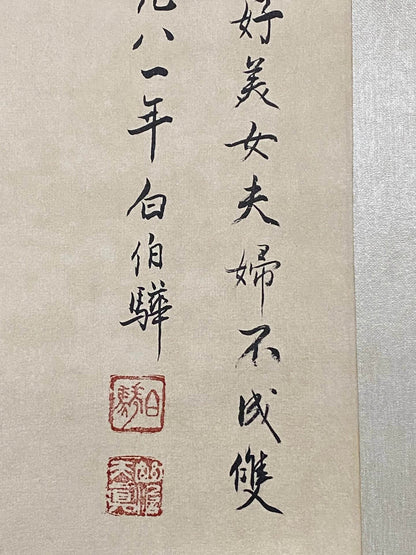 好美女夫婦不成雙
八一年白伯驊
白驊
天真